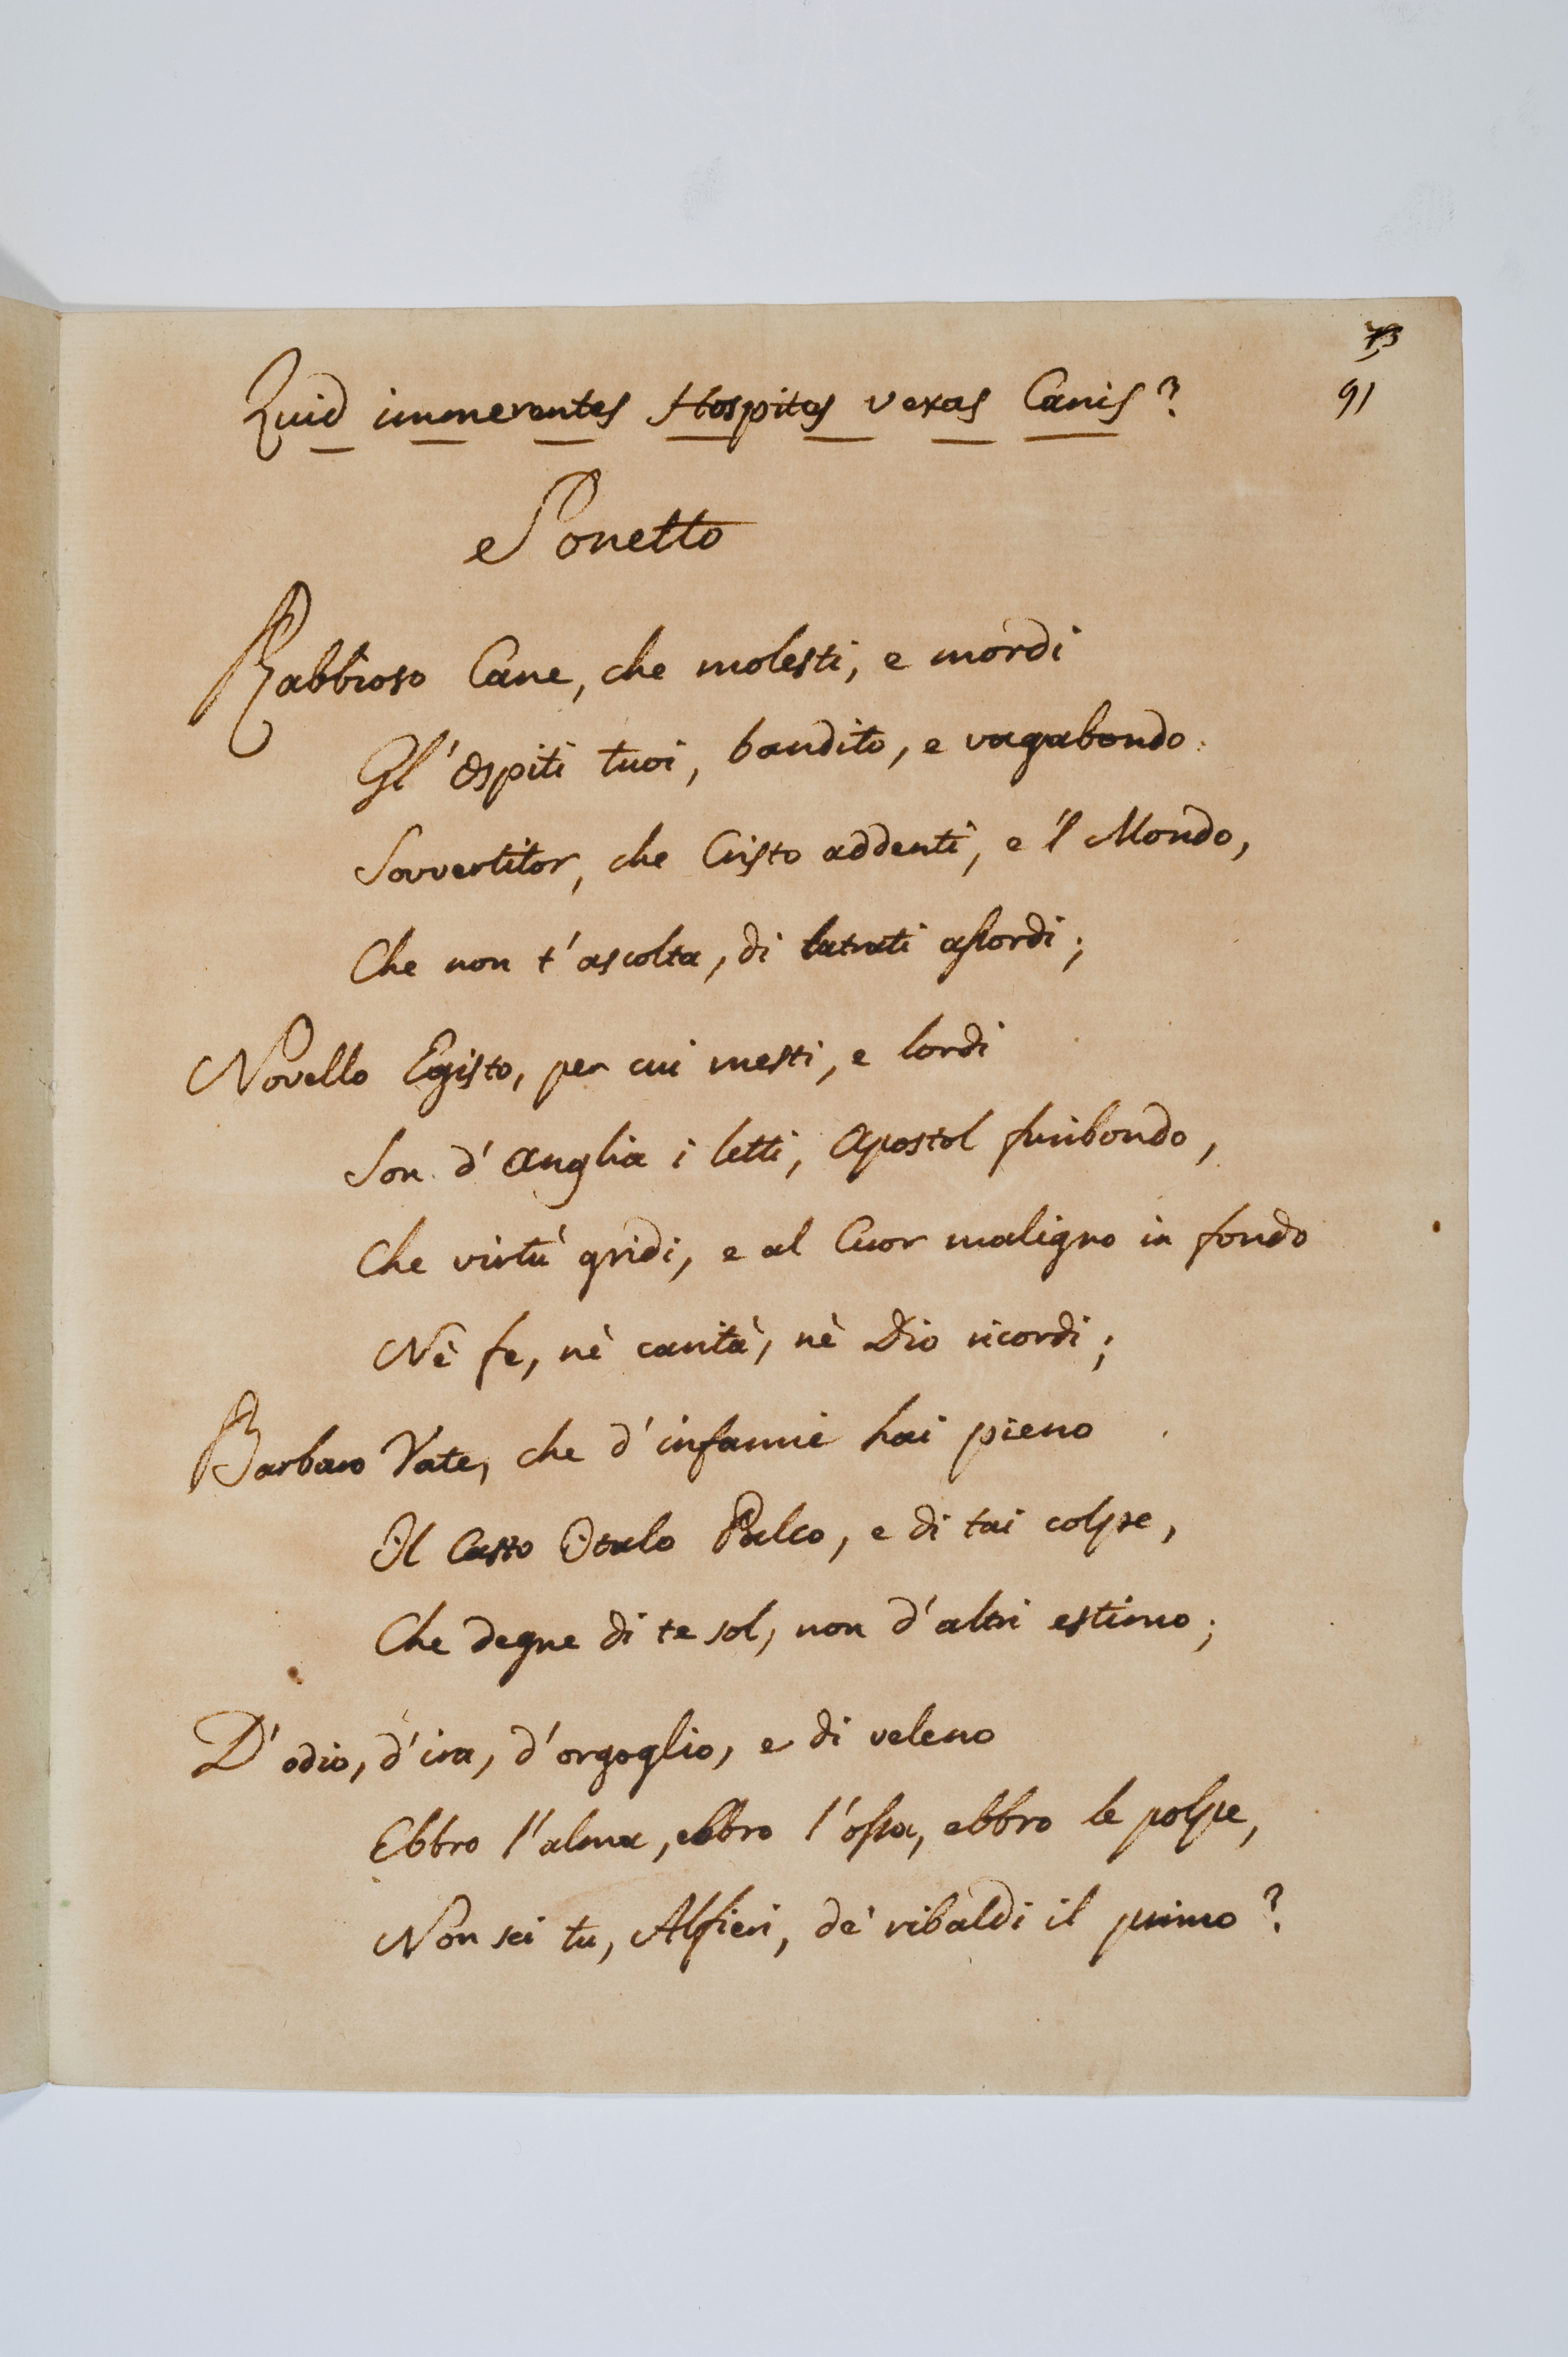 73
91
Quid immerentes Hospites vexas Canis?
Sonetto
Rabbioso Cane, che molesti, e mordi
Gl'Ospiti tuoi, bandito, e vagabondo
Sovvertitor, che Cristo addenti, e 'l Mondo,
Che non t'ascolta, di latrati assordi;
Novello Egisto, per cui mesti, e lordi
Son d'Anglia i letti, Apostol furibondo,
Che virtù gridi, e al Cuor maligno in fondo
Nè fe, nè carità, nè Dio ricordi;
Barbaro Vate, che d'infamie hai pieno
Il Casto Italo Palco, e di tai colpe,
Che degne di te sol, non d'altri estimo;
D'odio, d'ira, d'orgoglio, e di veleno
Ebbro l'alma, ebbro l'ossa, ebbro le polpe,
Non sei tu, Alfieri, de' ribaldi il primo?